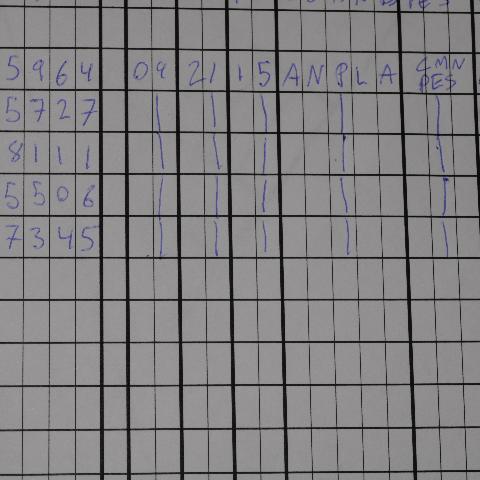 5964 09 21 15 ANPLA CMN PES
5727 | | | | |
8111 | | | | |
5506 | | | | |
7345 | | | | |